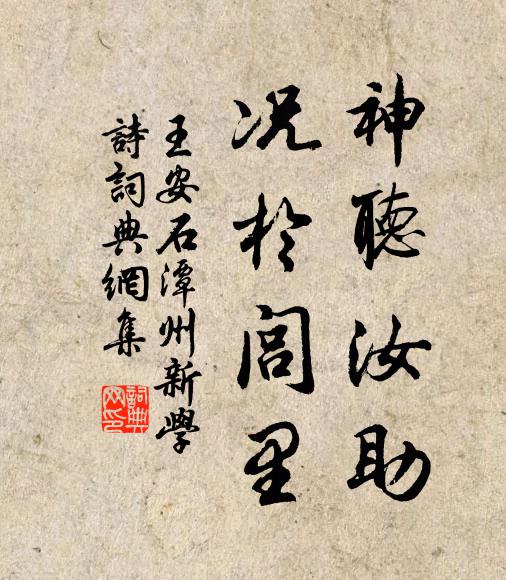 神聽汝助
况於閭里
王安石潭州新學
詩詞典網集
詞典网印